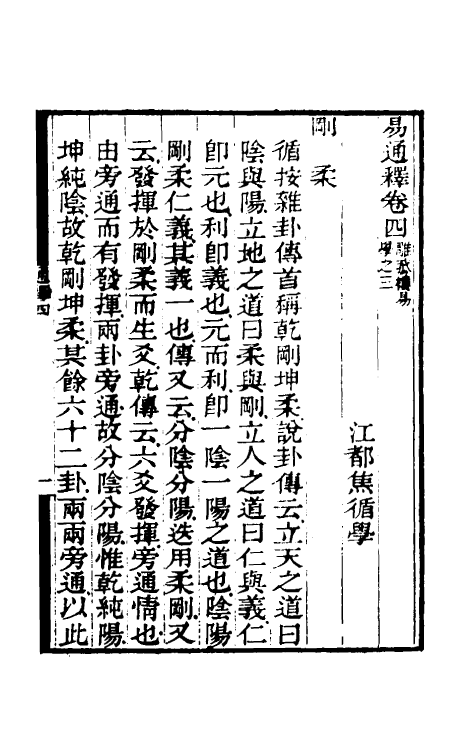 易通釋卷四雕菰樓易學之三
江都焦循學
剛柔
循按雜卦傳首稱乾剛坤柔說卦傳云立天之道曰
陰與陽立地之道曰柔與剛立人之道曰仁與義仁
卽元也利卽義也元而利卽一陰一陽之道也陰陽
剛柔仁義其義一也傳又云分陰分陽迭用柔剛又
云發揮於剛柔而生爻乾傳云六爻發揮旁通情也
由旁通而有發揮兩卦旁通故分陰分陽惟乾純陽
坤純陰故乾剛坤柔其餘六十二卦兩兩旁通以此
通釋四
一